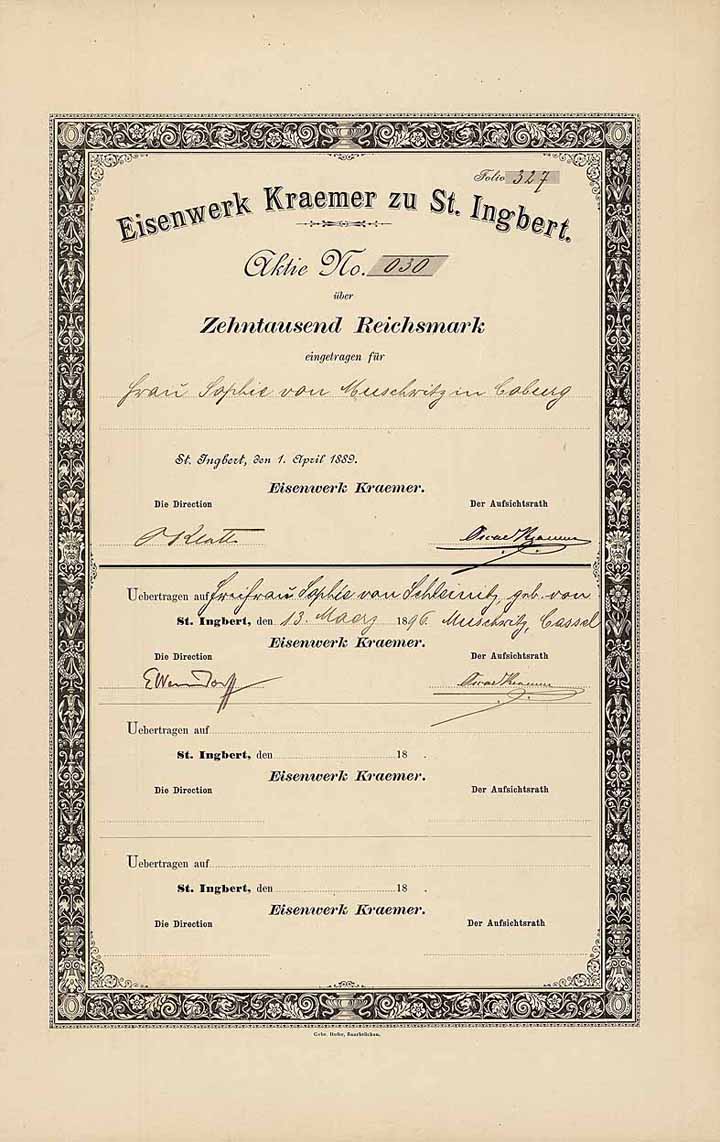 Folio 327
Eisenwerk Kraemer zu St. Ingbert.
Aktie No. 030
über
Zehntausend Reichsmark
eingetragen für
Frau Sophie von Muschwitz in Coburg
St. Ingbert, den 1. April 1889.
Eisenwerk Kraemer.
Die Direction Der Aufsichtsrath
Oscar Kraemer
Uebertragen auf Freifrau Sophie von Schleinitz, geb. von
St. Ingbert, den 13. Maerz 1896. Muschwitz, Cassel
Eisenwerk Kraemer.
Die Direction Der Aufsichtsrath
Oscar Kraemer
Uebertragen auf
St. Ingbert, den 18 .
Eisenwerk Kraemer.
Die Direction Der Aufsichtsrath
Uebertragen auf
St. Ingbert, den 18 .
Eisenwerk Kraemer.
Die Direction Der Aufsichtsrath
Gebr. Hofer, Saarbrücken.